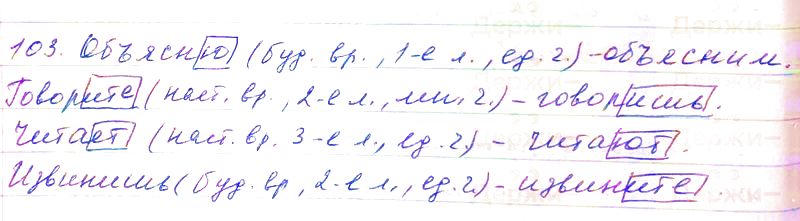 103. Объясню (буд. вр., 1-е л., ед. ч.) - объясним.
Говорите (наст. вр., 2-е л., мн. ч.) - говоришь.
Читает (наст. вр. 3-е л., ед. ч.) - читают.
Извинишь (буд. вр., 2-е л., ед. ч.) - извините.